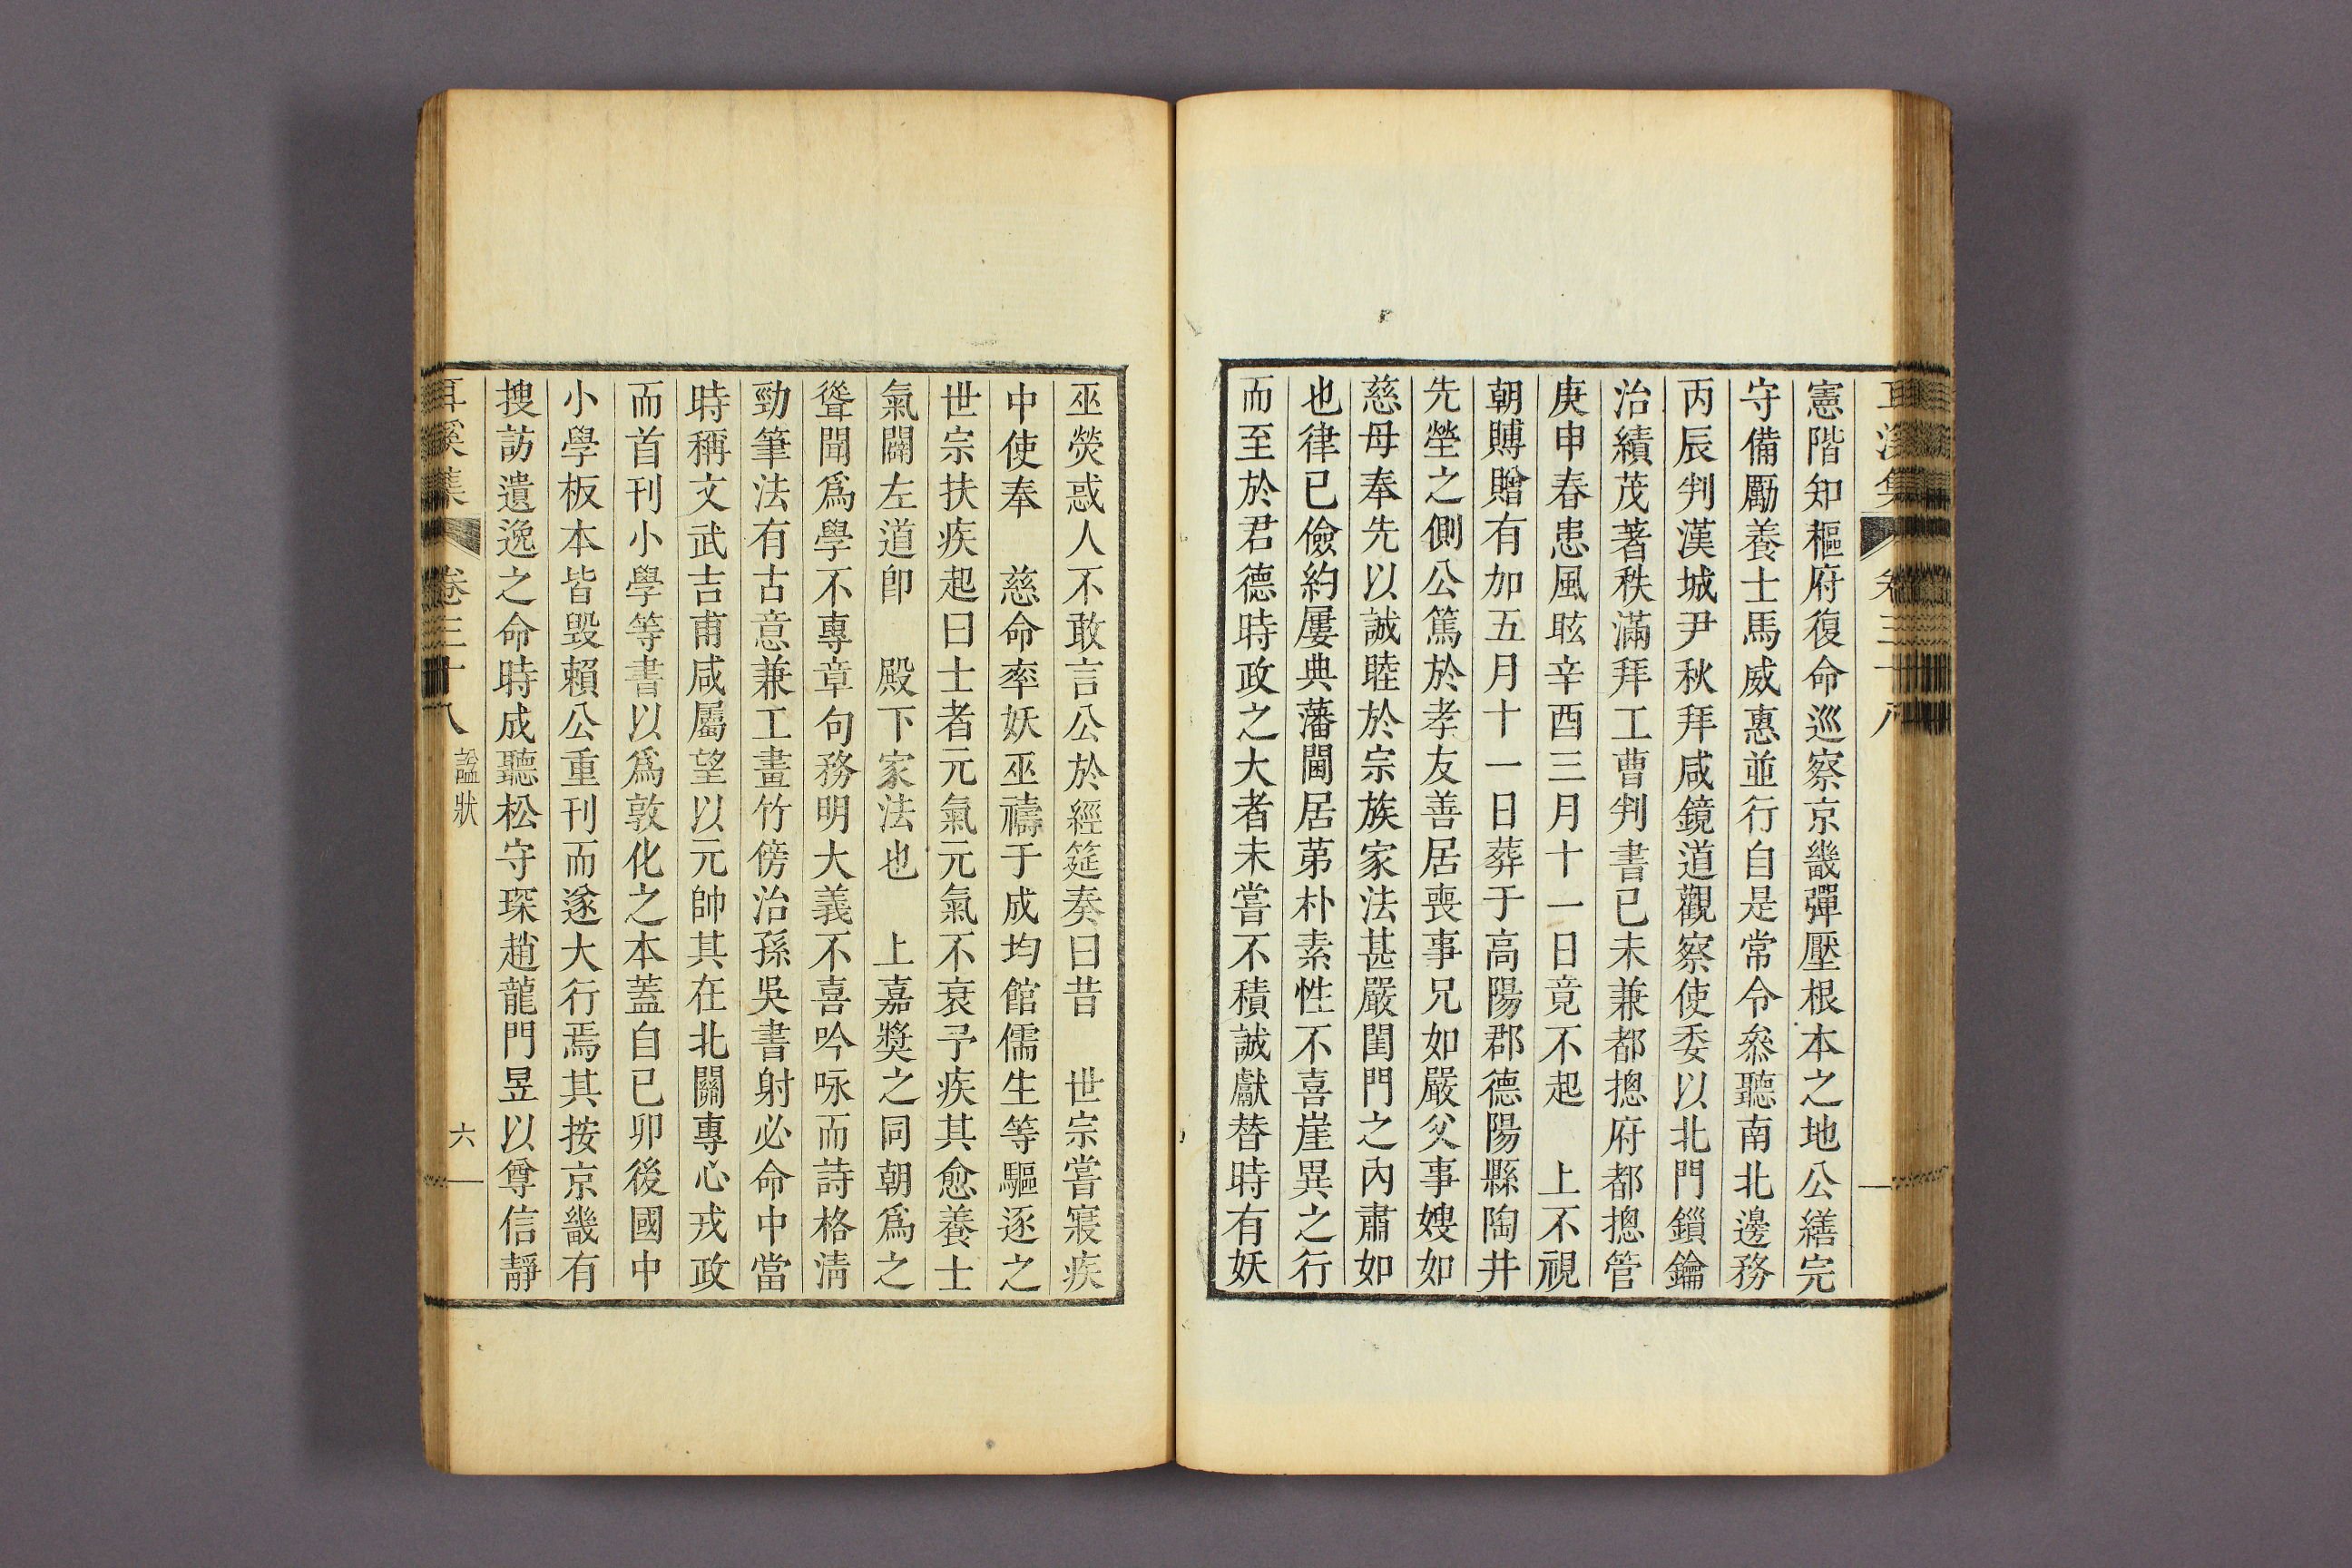 憲階知樞府復命巡察京畿彈壓根本之地公繕完
守備勵養士馬威惠並行自是常令叅聽南北邊務
丙辰判漢城尹秋拜咸鏡道觀察使委以北門鎖鑰
治績茂著秩滿拜工曹判書已未兼都摠府都摠管
庚申春患風眩辛酉三月十一日竟不起　上不視
朝賻贈有加五月十一日葬于高陽郡德陽縣陶井
先塋之側公篤於孝友善居喪事兄如嚴父事嫂如
慈母奉先以誠睦於宗族家法甚嚴閨門之內肅如
也律已儉約屢典藩閫居苐朴素性不喜崖異之行
而至於君德時政之大者未嘗不積誠獻替時有妖
巫熒惑人不敢言公於經筵奏曰昔　世宗嘗寢疾
中使奉　慈命率妖巫禱于成均館儒生等驅逐之
世宗扶疾起曰士者元氣元氣不衰予疾其愈養士
氣闢左道卽　殿下家法也　上嘉獎之同朝爲之
聳聞爲學不專章句務明大義不喜吟咏而詩格淸
勁筆法有古意兼工畫竹傍治孫吳書射必命中當
時稱文武吉甫咸屬望以元帥其在北關專心戎政
而首刊小學等書以爲敦化之本蓋自已卯後國中
小學板本皆毀賴公重刊而遂大行焉其按京畿有
搜訪遺逸之命時成聽松守琛趙龍門昱以尊信靜
耳溪集　卷三十八　諡狀　六